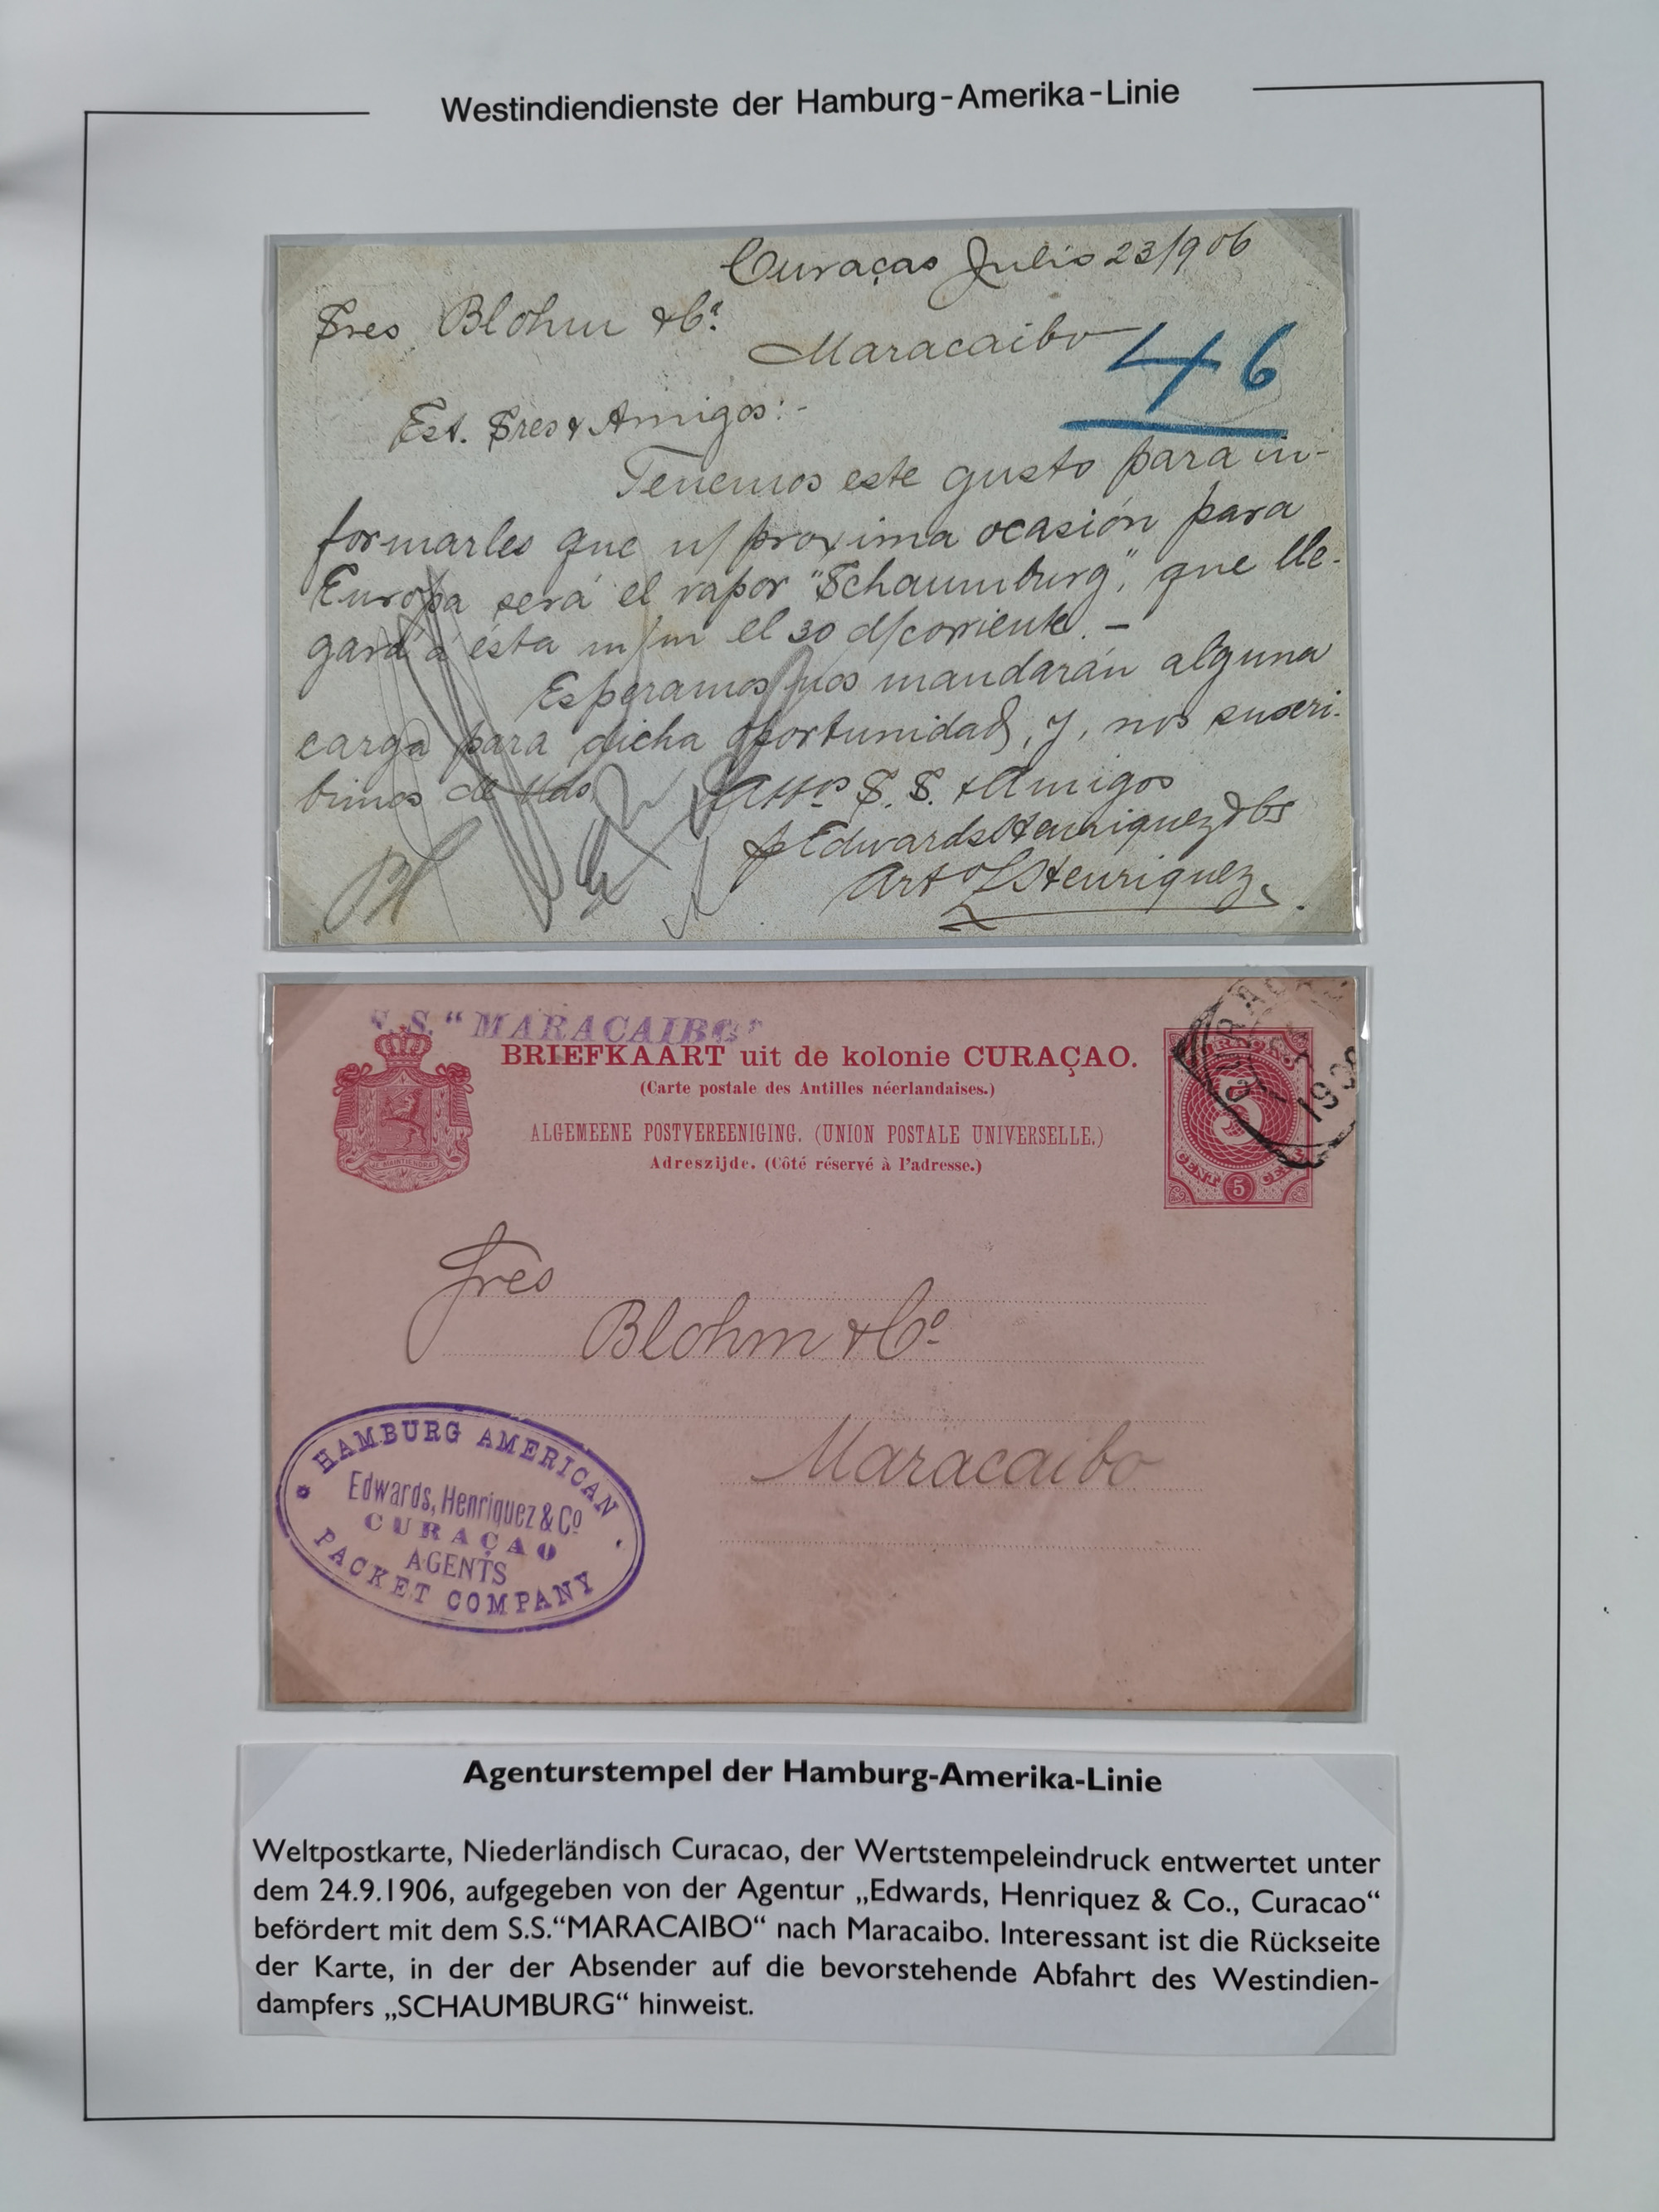 Westindiendienste der Hamburg-Amerika-Linie
Curaçao Julio 23/906
Sres Blohm & Cº
Maracaibo
46
Est. Sres & Amigos:-
Tenemos este gusto para in-
formarles que n/ proxima ocasión para
Europa será el vapor "Schaumburg", que lle-
gará á ésta m/m el 30 d/corriente. -
Esperamos nos mandarán alguna
carga para dicha oportunidad, y, nos suscri-
bimos de Uds
Attos S. S. & Amigos
p Edwards Henriquez & Co
Artº L Henriquez
S.S. "MARACAIBO"
BRIEFKAART uit de kolonie CURAÇAO.
(Carte postale des Antilles néerlandaises.)
ALGEMEENE POSTVEREENIGING. (UNION POSTALE UNIVERSELLE.)
Adreszijde. (Côté réservé à l'adresse.)
JE MAINTIENDRAI
5
CENT 5 CENT
Sres
Blohm & Cº
Maracaibo
HAMBURG AMERICAN
Edwards, Henriquez & Cº
CURAÇAO
AGENTS
PACKET COMPANY
Agenturstempel der Hamburg-Amerika-Linie
Weltpostkarte, Niederländisch Curacao, der Wertstempeleindruck entwertet unter
dem 24.9.1906, aufgegeben von der Agentur „Edwards, Henriquez & Co., Curacao“
befördert mit dem S.S.“MARACAIBO“ nach Maracaibo. Interessant ist die Rückseite
der Karte, in der der Absender auf die bevorstehende Abfahrt des Westindien-
dampfers „SCHAUMBURG“ hinweist.